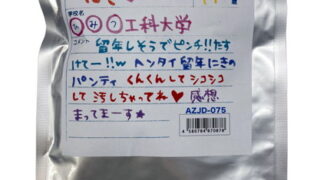 学校名
ひみつ工科大学
コメント
留年しそうでピンチ!!たす
けてー!!w ヘンタイ留年にきの
パンティ くんくんして シコシコ
して 汚しちゃってね♥ 感想
まってまーす☆
AZJD-075
4 595784 870878